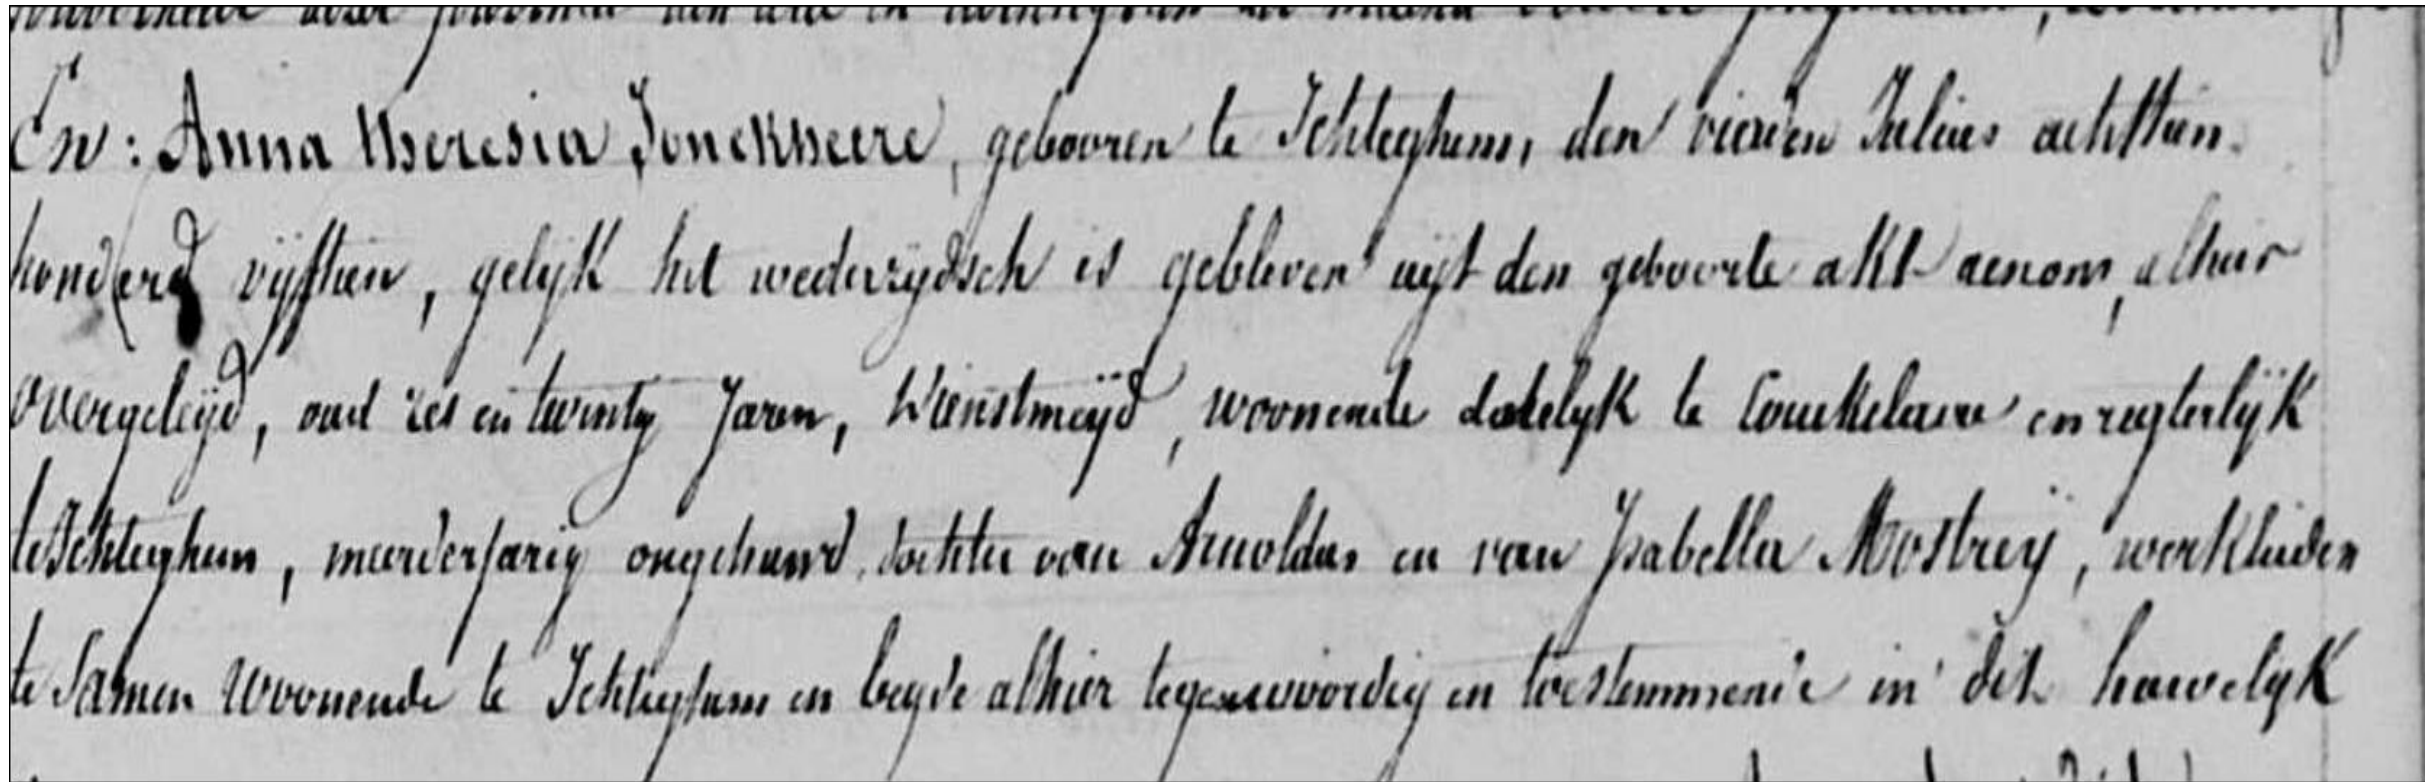 En: Anna Theresia Jonckheere, gebooren te Ichteghem, den vierden Julius achttien
honderd vijftien, gelijk het wederzydsch is gebleven uijt den geboorte akt aenom, alhier
overgeleijd, oud zes en twintig Jaren, Dienstmeijd, woonende datelyk te Couckelaere en regterlijk
te Ichteghem, meerderjarig ongehuwd, dochter van Arnoldus en van Isabella Mostreij, werklieden
te Samen woonende te Ichteghem en beyde alhier tegenwoordig en toestemmende in dit houwelyk